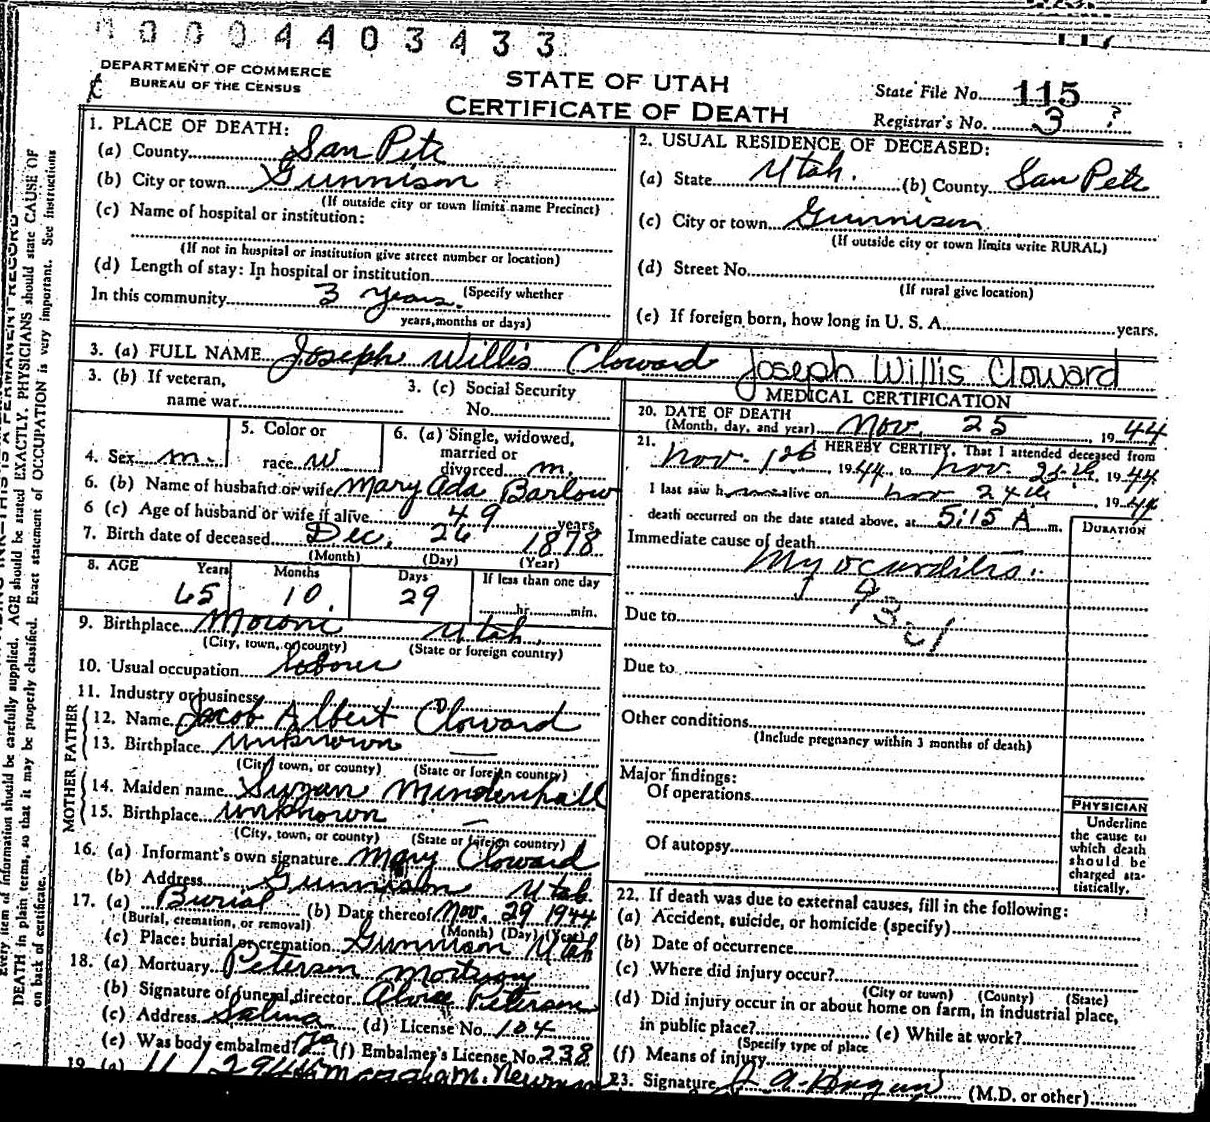 0004403433
DEPARTMENT OF COMMERCE
BUREAU OF THE CENSUS
STATE OF UTAH
CERTIFICATE OF DEATH
State File No. 115
Registrar's No. 3 ?
1. PLACE OF DEATH:
(a) County San Pete
(b) City or town Gunnison
(If outside city or town limits name Precinct)
(c) Name of hospital or institution:
(If not in hospital or institution give street number or location)
(d) Length of stay: In hospital or institution
(Specify whether
In this community 3 years.
years, months or days)
2. USUAL RESIDENCE OF DECEASED:
(a) State Utah. (b) County San Pete
(c) City or town Gunnison
(If outside city or town limits write RURAL)
(d) Street No.
(If rural give location)
(e) If foreign born, how long in U. S. A. years.
3. (a) FULL NAME Joseph Willis Cloward Joseph Willis Cloward
3. (b) If veteran,
name war
3. (c) Social Security
No.
4. Sex m.
5. Color or
race W
6. (a) Single, widowed,
married or
divorced m.
6. (b) Name of husband or wife Mary Ada Barlow
6 (c) Age of husband or wife if alive 49 years
7. Birth date of deceased Dec. 26 1878
(Month) (Day) (Year)
8. AGE Years Months Days If less than one day
65 10 29 hr. min.
9. Birthplace Moroni Utah
(City, town, or county) (State or foreign country)
10. Usual occupation laborer
11. Industry or business
FATHER
12. Name Jacob Albert Cloward
13. Birthplace unknown
(City, town, or county) (State or foreign country)
MOTHER
14. Maiden name Susan Mindenhall
15. Birthplace unknown
(City, town, or county) (State or foreign country)
16. (a) Informant's own signature Mary Cloward
(b) Address Gunnison Utah
17. (a) Burial (b) Date thereof Nov. 29 1944
(Burial, cremation, or removal) (Month) (Day) (Year)
(c) Place: burial or cremation Gunnison Utah
18. (a) Mortuary Peterson Mortuary
(b) Signature of funeral director Peterson
(c) Address Salina (d) License No. 104
(e) Was body embalmed? (f) Embalmer's License No. 238
19. (a) 11/29
MEDICAL CERTIFICATION
20. DATE OF DEATH
(Month, day, and year) Nov. 25, 1944
21. I HEREBY CERTIFY, That I attended deceased from
Nov. 1944, to Nov. 1944
I last saw h alive on Nov 24th, 1944
death occurred on the date stated above, at 5:15 A m.
DURATION
Immediate cause of death
Myocarditis.
Due to
Due to
Other conditions
(Include pregnancy within 3 months of death)
Major findings:
Of operations
Of autopsy
PHYSICIAN
Underline
the cause to
which death
should be
charged sta-
tistically.
22. If death was due to external causes, fill in the following:
(a) Accident, suicide, or homicide (specify)
(b) Date of occurrence
(c) Where did injury occur?
(City or town) (County) (State)
(d) Did injury occur in or about home on farm, in industrial place,
in public place? (e) While at work?
(Specify type of place
(f) Means of injury
23. Signature (M.D. or other)
Every item of information should be carefully supplied. AGE should be stated EXACTLY. PHYSICIANS should state CAUSE OF
DEATH in plain terms, so that it may be properly classified. Exact statement of OCCUPATION is very important. See instructions
on back of certificate.